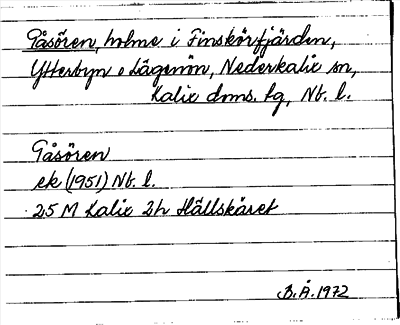 Gåsören, holme i Finskörfjärden,
Ytterbyn o Lägenön, Nederkalix sn,
Kalix dmns. tg, Nb. l.
Gåsören
ek (1951) Nb. l.
25 M Kalix 2h Hällskäret
B.Å. 1972